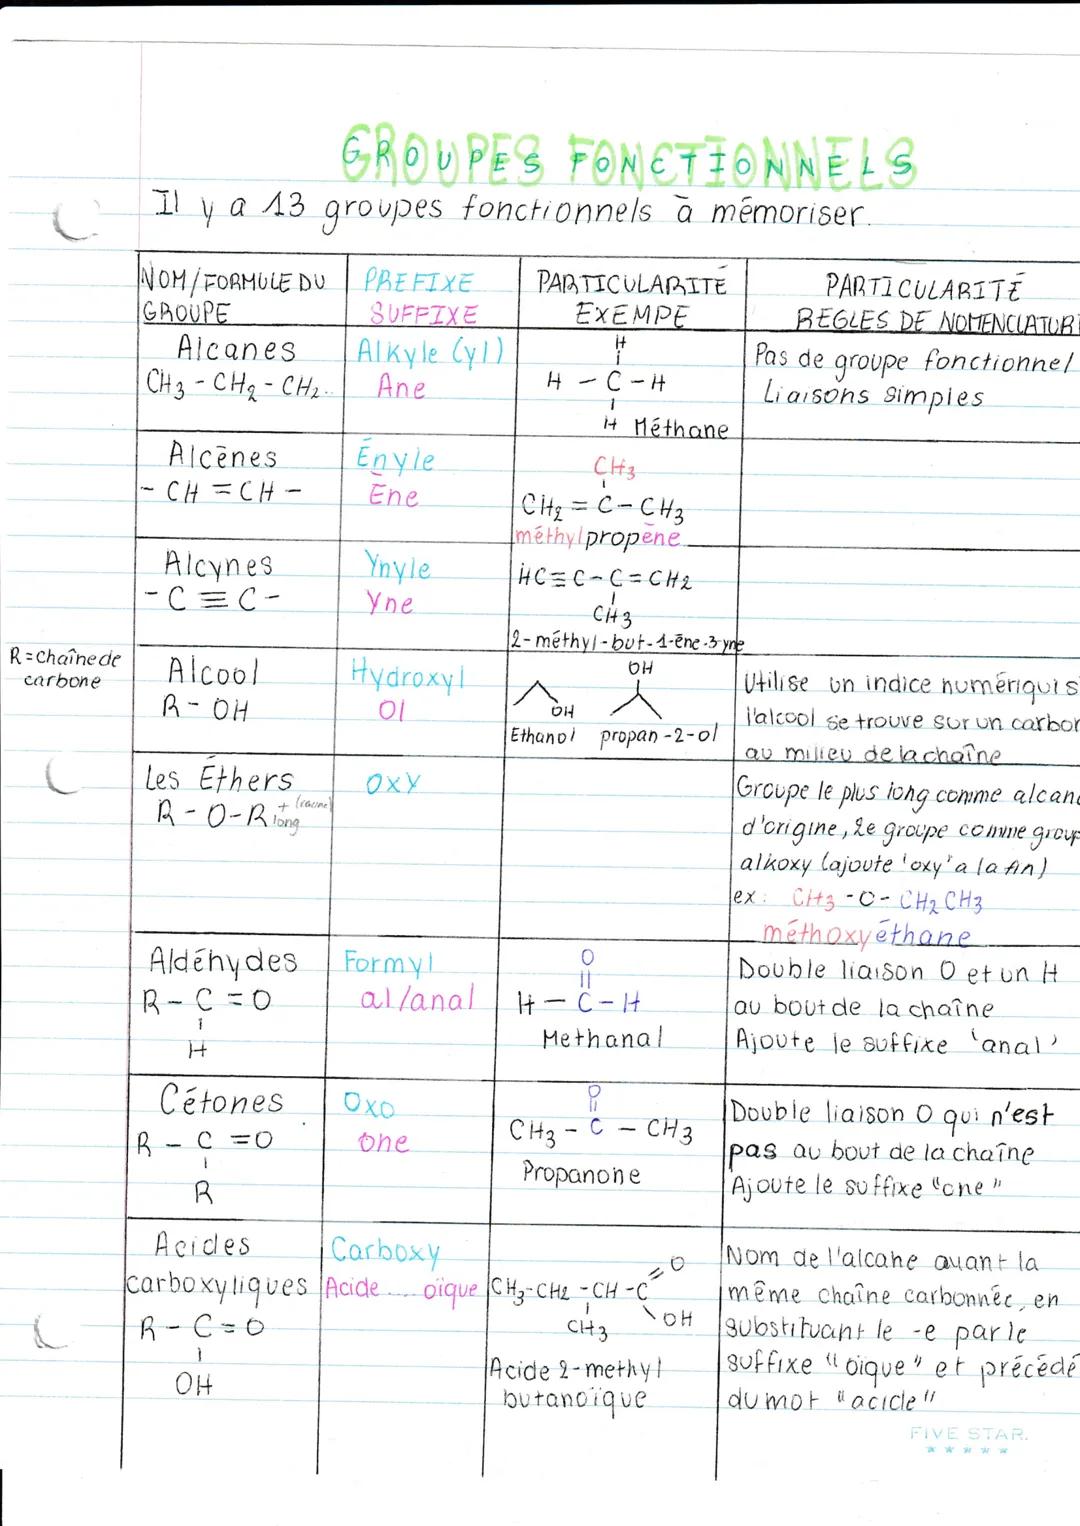 GROUPES FONCTIONNELS
Il y a 13 groupes fonctionnels à mémoriser.
NOM/FORMULE DU GROUPE
PREFIXE
SUFFIXE
PARTICULARITÉ
EXEMPE
PARTICULARITÉ
REGLES DE NOMENCLATUR
Alcanes
CH3 - CH2 - CH2...
Alkyle (yl)
Ane
H
H - C - H
H Méthane
Pas de groupe fonctionnel
Liaisons simples
Alcènes
- CH = CH -
Ényle
Ène
CH3
CH2 = C - CH3
méthylpropène
Alcynes
- C ≡ C -
Ynyle
Yne
HC ≡ C - C = CH2
CH3
2-méthyl-but-1-ène-3-yne
R = chaîne de
carbone
Alcool
R - OH
Hydroxyl
Ol
OH
OH
Ethanol propan-2-ol
Utilise un indice numériquis
l'alcool se trouve sur un carbon
au milieu de la chaîne
Les Éthers
R - O - R long
Oxy
Groupe le plus long comme alcane
d'origine, 2e groupe comme group
alkoxy (ajoute 'oxy' a la fin)
ex: CH3 - O - CH2 CH3
méthoxyéthane
Aldéhydes
R - C = O
H
Formyl
al/anal
O
H - C - H
Methanal
Double liaison O et un H
au bout de la chaîne
Ajoute le suffixe 'anal'
Cétones
R - C = O
R
Oxo
one
O
CH3 - C - CH3
Propanone
Double liaison O qui n'est
pas au bout de la chaîne
Ajoute le suffixe "one"
Acides
carboxyliques
R - C = O
OH
Carboxy
Acide .... oïque
CH3 - CH2 - CH - C = O
CH3 OH
Acide 2-methyl
butanoïque
Nom de l'alcane ayant la
même chaîne carbonnée, en
substituant le -e par le
suffixe "oïque" et précédé
du mot "acide"
FIVE STAR.